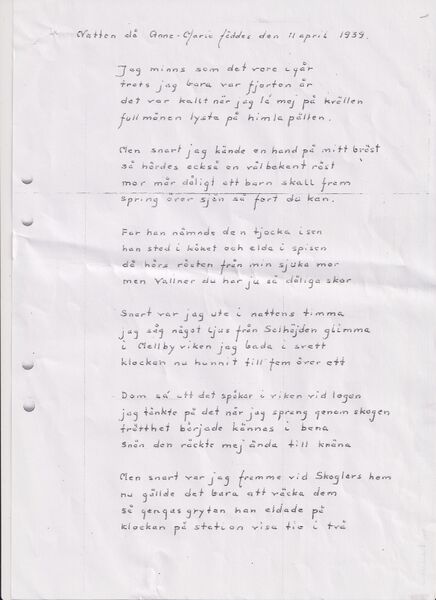 Natten då Anne-Marie föddes den 11 april 1939.
Jag minns som det vore igår
trots jag bara var fjorton år
det var kallt när jag lå mej på kvällen
fullmånen lyste på himlapällen.
Men snart jag kände en hand på mitt bröst
så hördes också en välbekant röst
mor mår dåligt ett barn skall fram
spring över sjön så fort du kan.
Far han nämnde den tjocka isen
han stod i köket och elda i spisen
då hörs rösten från min sjuka mor
men Vallner du har ju så dåliga skor
Snart var jag ute i nattens timma
jag såg något ljus från Solhöjden glimma
i Mellby viken jag bada i svett
klockan nu hunnit till fem över ett
Dom sa att det spökar i viken vid logen
jag tänkte på det när jag sprang genom skogen
trötthet började kännas i bena
Snön den räckte mej ända till knäna
Men snart var jag framme vid Skoglars hem
nu gällde det bara att väcka dem
så gengasgrytan han eldade på
klockan på station visa tio i två